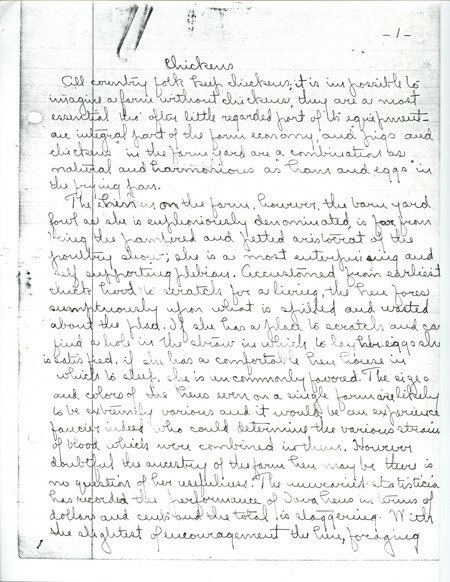 -1-
Chickens
All country folk keep chickens; it is impossible to
imagine a farm without chickens, they are a most
essential tho' often little regarded part of its equipment-
an integral part of the farm economy, and "pigs and
chickens" in the farm yard are a combination as
natural and harmonious as "ham and eggs" in
the frying pan.
The hen on the farm, however, the barn yard
fowl as she is euphoniously denominated, is far from
being the pampered and petted aristocrat of the
poultry show; she is a most enterprising and
self supporting plebian. Accustomed from earliest
chick hood to scratch for a living, the hen fares
sumptuously upon what is spilled and wasted
about the place. If she has a place to scratch and can
find a hole in the straw in which to lay her eggs she
is satisfied, if she has a comfortable hen house in
which to sleep, she is uncommonly favored. The sizes
and colors of the hens even on a single farm are likely
to be extremely various and it would be an experience
fancier indeed who could determine the various strains
of blood which were combined in them. However
doubtful the ancestry of the farm hen may be there is
no question of her usefulness. The unwearied statisticia
has recorded the performance of Iowa hens in terms of
dollars and cents and the total is staggering. With
the slightest of encouragement the hen, foraging